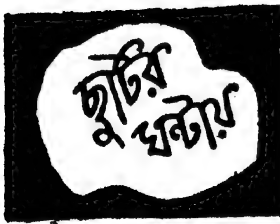 ছুটির
ঘন্টায়